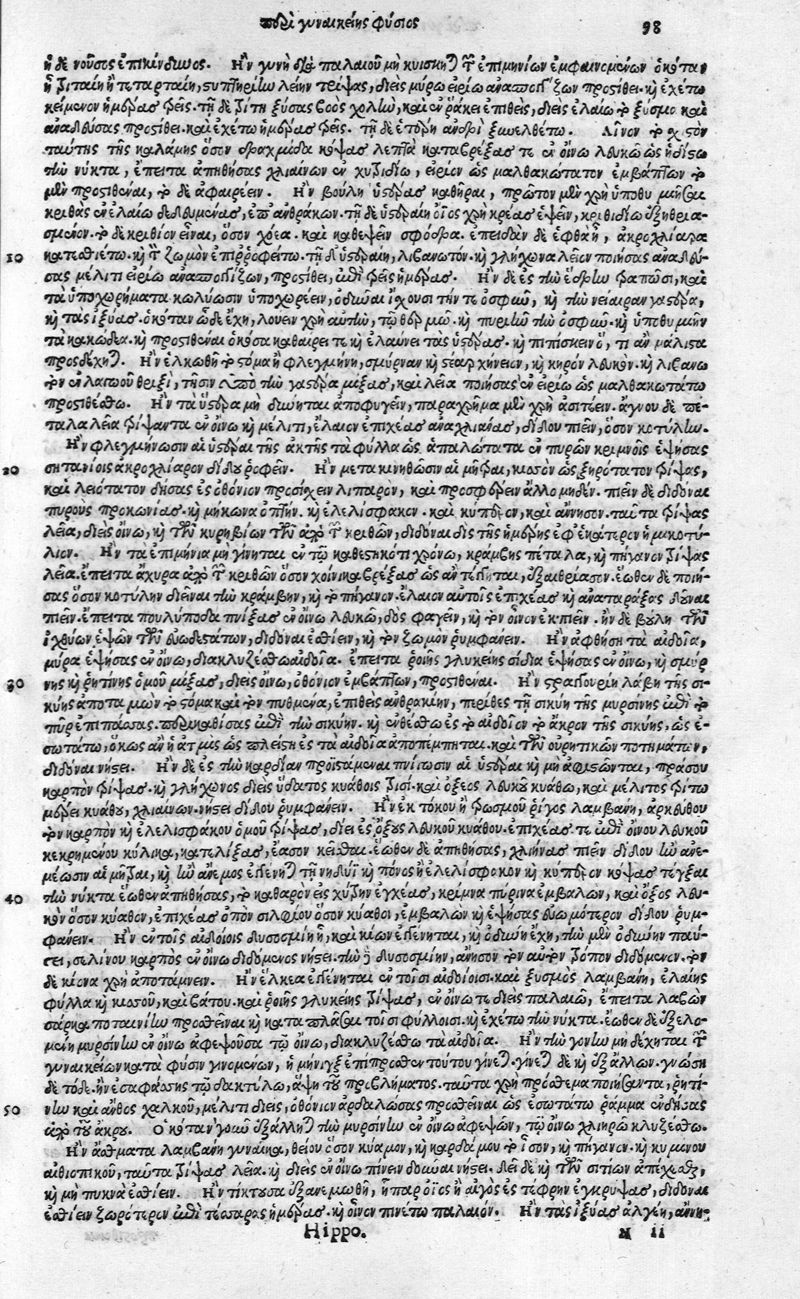 περὶ γυναικείης φύσιος 98
ἡ δὲ νοῦσος ἐπικίνδυνος. Ἢν γυνὴ διὰ παλαιοῦ μὴ κυΐσκηται τῶν ἐπιμηνίων ἐμφαινομένων ὁκόταν
ᾖ τριταίη ἢ τεταρταίη, στυπτηρίην λείην τρίψας, διεὶς μύρῳ εἰρίῳ ἀνασπογγίζων προστίθει. καὶ ἐχέτω
κείμενον ἡμέρας τρεῖς. τῇ δὲ τρίτῃ ξύσας βοὸς χολὴν, καὶ ὀθονίῳ ἐπιθεὶς, διεὶς ἐλαίῳ τὸ ξύσμα καὶ
ἀναδεύσας προστίθει. καὶ ἐχέτω ἡμέρας τρεῖς. τῇ δὲ ἑτέρῃ ἀνδρὶ ξυνελθέτω. Λίνον τὸ
ταύτης τῆς καλάμης ὅσον δραχμίδα κόψας λεπτὰ καταβρέξας τε ἐν οἴνῳ λευκῷ ὡς ἡδίστῳ
τὴν νύκτα, ἔπειτα ἀπηθήσας χλιαίνων ἐν χυτριδίῳ, εἴριον ὡς μαλθακώτατον ἐμβάπτων τὸ
μὲν προστιθέναι, τὸ δὲ ἀφαιρέειν. Ἢν βούλῃ ὑστέρας καθῆραι, πρῶτον μὲν χρὴ ὑποθυμιῆσαι
κριθὰς ἐν ἐλαίῳ δεδευμένας, ἐπ' ἀνθράκων. τῇ δὲ ὑστεραίῃ ὄϊος χρὴ κρέας ἕψειν, κριθιδίῳ ἐξηθρια-
σμένον. τὸ δὲ κρίθιον εἶναι, ὅσον χοέα. καὶ καθέψειν σφόδρα. ἐπειδὰν δὲ ἑφθὰ ᾖ, ἀκροχλίαρα
κατεσθιέτω. καὶ τὸν ζωμὸν ἐπιῤῥοφείτω. τῇ δ' ὑστεραίῃ, λιβανωτὸν καὶ γλήχωνα λεῖον ποιήσας ἀναδεύ-
σας μέλιτι εἰρίῳ ἀνασπογγίζων, προστίθει, ἐπὶ τρεῖς ἡμέρας. Ἢν δὲ ἐς τὴν ἕδρην τράπωσι, καὶ
τὰ ὑποχωρήματα κωλύωσιν ὑποχωρέειν, ὀδύναι ἴχουσι τήν τε ὀσφῦν, καὶ τὴν νείαιραν γαστέρα,
καὶ τὰς ἰξύας. ὁκόταν ὧδε ἔχῃ, λούειν χρὴ αὐτὴν, τῷ θερμῷ. καὶ πυριῆν τὴν ὀσφῦν. καὶ ὑποθυμιῆν
τὰ κακώδεα. καὶ προστιθέναι ὁκόσα καθαίρει τε καὶ ἐλαύνει τὰς ὑστέρας. καὶ πιπίσκειν ὅ, τι ἂν μάλιστα
προσδέχηται. Ἢν ἑλκωθῇ τὸ στόμα ἢ φλεγμήνῃ, σμύρναν καὶ στέαρ χήνειον, καὶ κηρὸν λευκὸν. καὶ λιβανω
τὸν ἐν λαγωοῦ θριξὶ, τῇσιν ὑπὸ τὴν γαστέρα μίξας, καὶ λεῖα ποιήσας ἐν εἰρίῳ ὡς μαλθακωτάτῳ
προστιθέσθω. Ἢν τὰ ὕστερα μὴ δύνηται ἀποφυγεῖν, παραχρῆμα μὲν χρὴ ἀσιτέειν. ἄγνου δὲ πέ-
ταλα λεῖα τρίψαντα ἐν οἴνῳ καὶ μέλιτι, ἔλαιον ἐπιχέας ἀναχλιήνας, δίδου πιεῖν, ὅσον κοτύλην.
Ἢν φλεγμήνωσιν αἱ ὑστέραι τῆς ἀκτῆς τὰ φύλλα ὡς ἁπαλώτατα ἐν πυρῶν κρίμνοις ἑψήσας
σητανίοις ἀκροχλίαρον δίδου ῥοφεῖν. Ἢν μετακινηθῶσιν αἱ μῆτραι, κισσὸν ὡς ξηρότατον τρίψας,
καὶ λειότατον δήσας ἐς ὀθόνιον προσίσχειν λιπαρὸν, καὶ προσφέρειν ἄλλο μηδέν. πιεῖν δὲ διδόναι
πυροὺς προκωνίας. καὶ μήκωνα ὀπτήν. καὶ ἐλελίσφακον. καὶ κύπερον, καὶ ἄννησον. ταῦτα τρίψας
λεῖα, διεὶς οἴνῳ, καὶ τῶν κυρηβίων τῶν ἀπὸ τῶν κριθῶν, διδόναι δὶς τῆς ἡμέρης ἐφ' ἑκάτερον ἡμικοτύ-
λιον. Ἢν τὰ ἐπιμήνια μὴ γίνηται ἐν τῷ καθεστηκότι χρόνῳ, κράμβης πέταλα, καὶ πήγανον τρίψας
λεῖα. ἔπειτα ἄχυρα ἀπὸ τῶν κριθῶν ὅσον χοίνικα βρέξας ὡς ἂν τέγγηται, ἐξαιθρίασον. ἕωθεν δὲ ποιή-
σας ὅσον κοτύλην διεῖναι τὴν κράμβην, καὶ τὸ πήγανον. ἔλαιον αὐτοῖς ἐπιχέας καὶ ἀναταράξας δοῦναι
πιεῖν. ἔπειτα πουλύποδα πνίξας ἐν οἴνῳ λευκῷ, δὸς φαγεῖν, καὶ τὸν οἶνον ἐκπιεῖν. ἢν δὲ βούλῃ τῶν
ἰχθύων ἕψων τῶν εὐωδεστάτων, διδόναι ἐσθίειν, καὶ τὸν ζωμὸν ῥυμφάνειν. Ἢν ἀφθήσῃ τὰ αἰδοῖα,
μύρα ἑψήσας ἐν οἴνῳ, διακλυζέσθω αἰδοῖα. ἔπειτα ῥοιῆς γλυκείης σίδια ἑψήσας ἐν οἴνῳ, καὶ σμύρ
νης καὶ ῥητίνης ὁμοῦ μίξας, διεὶς οἴνῳ, ὀθόνιον ἐμβάπτων, προστιθέναι. Ἢν στραγγουρίη λάβῃ τῆς σι-
κύης ἀποταμὼν τὸ στόμα καὶ τὸν πυθμένα, ἐπιθεὶς ἀνθρακιὴν, περίθες τῇ σικύῃ τῆς μυρσίνης ἐπὶ τὸ
πῦρ ἐπιπάσας. περικαθίσας ἐπὶ τὴν σικύην. καὶ ἐνθέσθω ἐς τὸ αἰδοῖον τὸ ἄκρον τῆς σικύης, ὡς ἐ-
σωτάτω, ὅκως ἂν ἡ ἀτμὶς ὡς πλείστη ἐς τὰ αἰδοῖα ἀποπέμπηται. καὶ τῶν οὐρητικῶν ποτημάτων,
διδόναι νήστει. Ἢν δὲ ἐς τὴν καρδίαν προϊστάμεναι πνίγωσιν αἱ ὑστέραι καὶ μὴ ἀφιστῶνται, πράσου
καρπὸν τρίψας. καὶ γλήχωνος διεὶς ὕδατος κυάθοις τρισί. καὶ ὄξεος λευκοῦ κυάθῳ, καὶ μέλιτος τρίτῳ
μέρει κυάθου, χλιαίνων. νήστει δίδου ῥυμφάνειν. Ἢν ἐκ τόκου ἢ τρωσμοῦ ῥῖγος λαμβάνῃ, ἀρκεύθου
τὸν καρπὸν καὶ ἐλελισφάκου ὁμοῦ τρίψας, δίει ἐς ὄξους λευκοῦ κύαθον. ἐπιχέας τε ἐπὶ οἴνου λευκοῦ
κεκρημένου κύλικα, κατελίξας, ἔασον κεῖσθαι. ἕωθεν δὲ ἀπηθήσας, χλιήνας πιεῖν δίδου ἢν ἀνε-
μέωσιν αἱ μῆτραι, καὶ ἢν ἄνεμος ἐγγένηται τῇ νηδύϊ καὶ πόνος ᾖ ἐλελίσφακον καὶ κύπερον κόψας τέγξαι
τὴν νύκτα ἕωθεν ἀπηθήσας, τὸ καθαρὸν ἐς χύτρην ἐγχέας, κρίμνα πύρινα ἐμβαλὼν, καὶ ὄξος λευ-
κὸν ὅσον κύαθον, ἐπιχέας ὀπὸν σιλφίου ὅσον κύαθοι, ἐμβαλὼν καὶ ἑψήσας εὐωμότερον δίδου ῥυμ-
φάνειν. Ἢν ἐν τοῖς αἰδοίοις δυσοσμίη ᾖ, καὶ κίων ἐγγένηται, καὶ ὀδύνη ἔχῃ, τὴν μὲν ὀδύνην παύ-
σει, σελίνου καρπὸς ἐν οἴνῳ διδόμενος νήστει. τὴν δὲ δυσοσμίην, ἄννησον τὸν αὐτὸν τρόπον διδόμενον. τὸν
δὲ κίονα χρὴ ἀποτάμνειν. Ἢν ἕλκεα ἐγγένηται ἐν τοῖσι αἰδοίοισι. καὶ ξυσμὸς λαμβάνῃ, ἐλαίης
φύλλα καὶ κισσοῦ, καὶ βάτου. καὶ ῥοιῆς γλυκείης τρίψας, ἐν οἴνῳ τε διεὶς παλαιῷ, ἔπειτα λαβὼν
σάρκα ποταινίην προσθεῖναι. καὶ καταπλάσαι τοῖσι φύλλοισι. καὶ ἐχέτω τὴν νύκτα. ἕωθεν δὲ ἐξελο-
μένη μυρσίνην ἐν οἴνῳ ἀφεψοῦσα τῷ οἴνῳ, διακλυζέσθω τὰ αἰδοῖα. Ἢν τὴν γονὴν μὴ δέχηται τῶν
γυναικείων κατὰ φύσιν γινομένων, ἡ μήνιγξ ἐπίπροσθεν τούτου γίνεται. γίνεται δὲ καὶ ἐξ ἄλλων. γνώσῃ
δὲ τόδε. ἢν ἐσαφάσσῃς τῷ δακτύλῳ, ἅψῃ τοῦ προβλήματος. ταῦτα χρὴ πρόσθεμα ποιήσαντα, ῥητί-
νην καὶ ἄνθος χαλκοῦ, μέλιτι διεὶς, ὀθόνιον ἀρδαλώσας προσθεῖναι ὡς ἐσωτάτω ῥάμμα ἐνδήσας
ἀπὸ τοῦ ἄκρου. Ὁκόταν ἐξέλθῃ τὴν μυρσίνην ἐν οἴνῳ ἀφεψῶν, τῷ οἴνῳ χλιηρῷ κλυζέσθω.
Ἢν ἄσθματα λαμβάνῃ γυναῖκα, θείου ὅσον κύαμον, καὶ καρδάμου τὸ ἴσον, καὶ πήγανον. καὶ κυμίνου
αἰθιοπικοῦ, ταῦτα τρίψας λεῖα. καὶ διεὶς ἐν οἴνῳ πίνειν δοῦναι νήστει. δεῖ δὲ καὶ τῶν σιτίων ἀπέχεσθαι,
καὶ μὴ πυκνὰ ἐσθίειν. Ἢν τίκτουσα ἐξανεμωθῇ, ἧπαρ ὄϊος ἢ αἰγὸς ἐς τέφρην ἐγκρύψας, διδόναι
ἐσθίειν ζωρότερον ἐπὶ τέσσαρας ἡμέρας. καὶ οἶνον πινέτω παλαιόν. Ἢν τὰς ἰξύας ἀλγέῃ, ἄννη-
Hippo. N ii
10
20
30
40
50